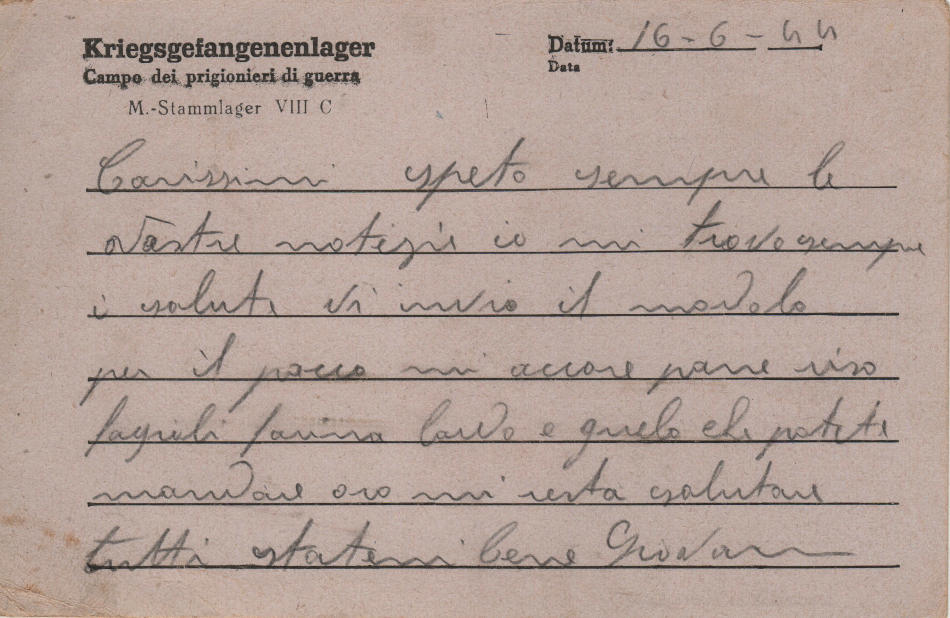 Kriegsgefangenenlager
Campo dei prigionieri di guerra
M.-Stammlager VIII C
Datum: 16-6-44
Data
Carissimi speto sempre le
vostre notizie io mi trovo sempre
i salute vi invio il modolo
per il pacco mi accore pane riso
fagiuli farina lardo e quelo che potete
mandare oro mi resta salutare
tutti statemi bene Giovan